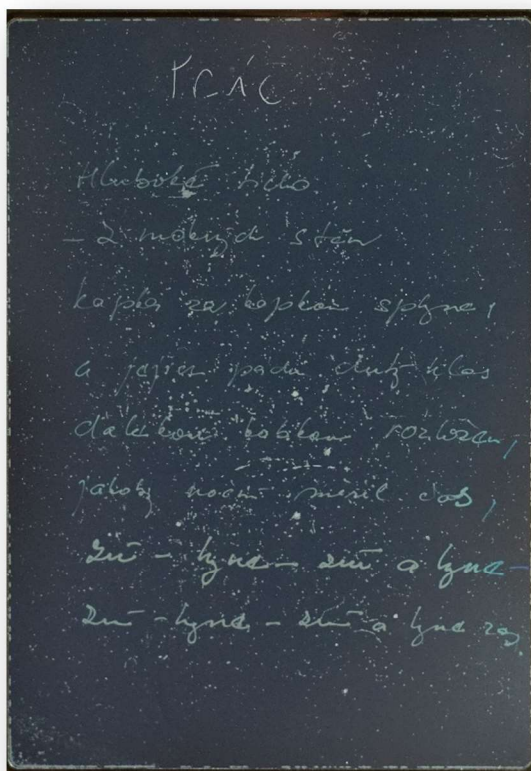 Hluboké ticho.
- Z mokrých stěn
kapka za kapkou splyne,
a jejich pádu dutý hlas
dalekou kobkou rozložen,
jakoby noční měřil čas,
zní - hyne - zní a hyne -
zní - hyne - zní a hyne zas.